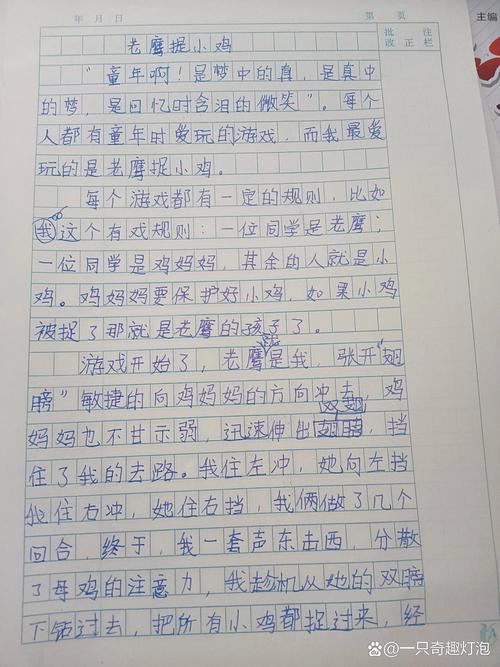 年 月 日 第 页
主编
批 注
改正栏
老鹰捉小鸡
"童年啊!是梦中的真,是真中
的梦,是回忆时含泪的微笑"。每个
人都有童年时爱玩的游戏,而我最爱
玩的是老鹰捉小鸡。
每个游戏都有一定的规则,比如
我这个有戏规则:一位同学是老鹰;
一位同学是鸡妈妈,其余的人就是小
鸡。鸡妈妈要保护好小鸡,如果小鸡
被捉了那就是老鹰的孩子了。
游戏开始了,老鹰是我,张开"翅
膀"敏捷的向鸡妈妈的方向冲去,鸡
双翅
妈妈也不甘示弱,迅速伸出翅膀,挡
住了我的去路。我住左冲,她向左挡
我住右冲,她住右挡,我俩做了几个
回合,终于,我一套声东击西,分散
了母鸡的注意力,我趁机从她的双膀
下钻过去,把所有小鸡都捉过来,经
一只奇趣灯泡